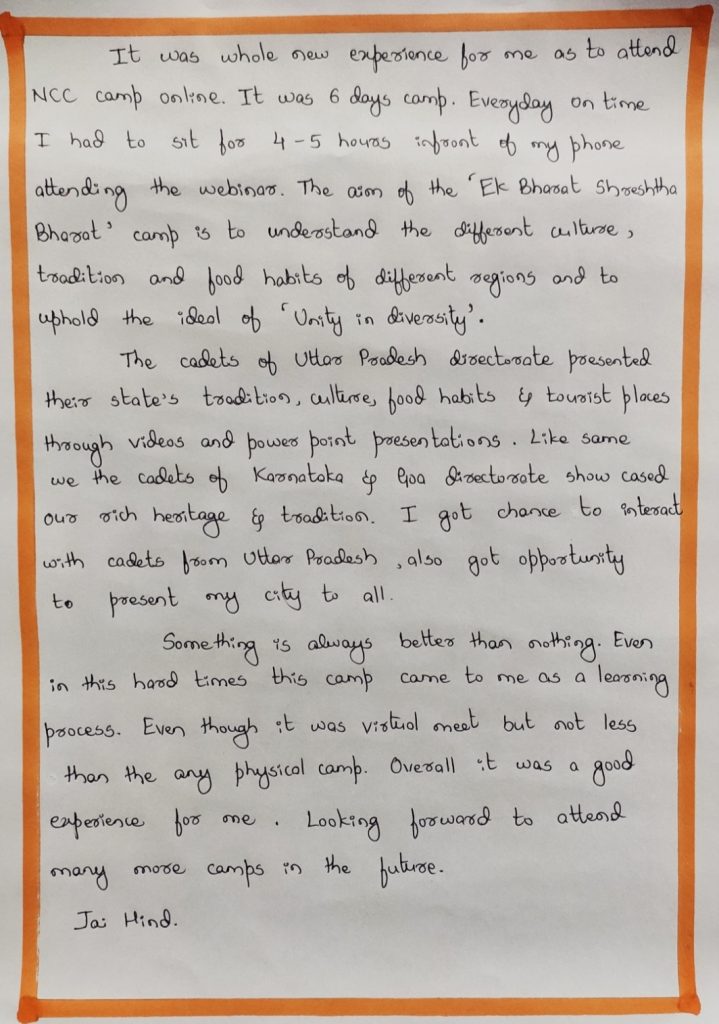 It was whole new experience for me as to attend
NCC camp online. It was 6 days camp. Everyday on time
I had to sit for 4-5 hours infront of my phone
attending the webinar. The aim of the 'Ek Bharat Shreshtha
Bharat' camp is to understand the different culture,
tradition and food habits of different regions and to
uphold the ideal of 'Unity in diversity'.
The cadets of Uttar Pradesh directorate presented
their state's tradition, culture, food habits & tourist places
through videos and power point presentations. Like same
we the cadets of Karnataka & Goa directorate show cased
our rich heritage & tradition. I got chance to interact
with cadets from Uttar Pradesh, also got opportunity
to present my city to all.
Something is always better than nothing. Even
in this hard times this camp came to me as a learning
process. Even though it was virtual meet but not less
than the any physical camp. Overall it was a good
experience for me. Looking forward to attend
many more camps in the future.
Jai Hind.